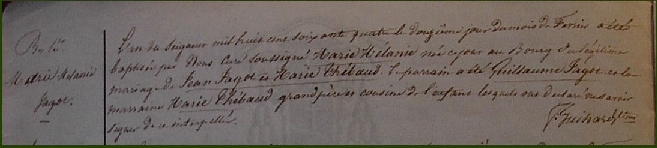 Bap.me
Marie Mélanie
Jagot.
L'an du Seigneur mil huit cent soixante quatre le douzième jour du mois de Février a été
baptisée par Nous Curé soussigné Marie Mélanie née ce jour au Bourg du légitime
mariage de Jean Jagot et Marie Thibaud. Le parrain a été Guillaume Jagot et la
marraine Marie Thibaud grand père et cousine de l'enfant lesquels ont déclaré ne savoir
signer de ce interpellés.